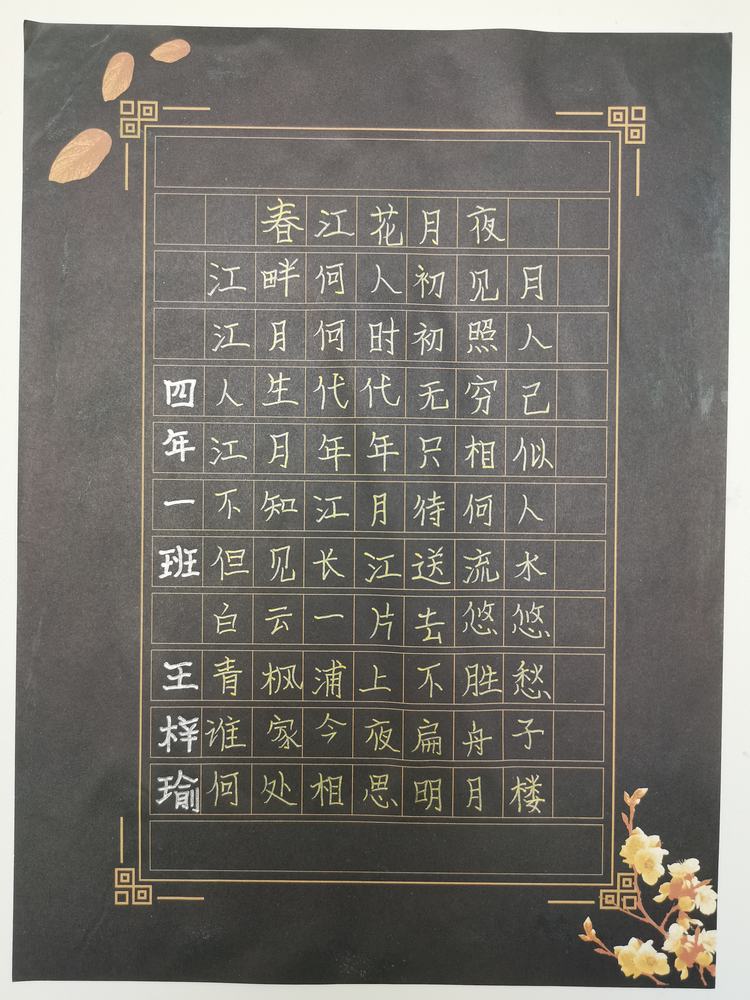 春江花月夜
江畔何人初见月
江月何时初照人
人生代代无穷己
江月年年只相似
不知江月待何人
但见长江送流水
白云一片去悠悠
青枫浦上不胜愁
谁家今夜扁舟子
何处相思明月楼
四年一班 王梓瑜